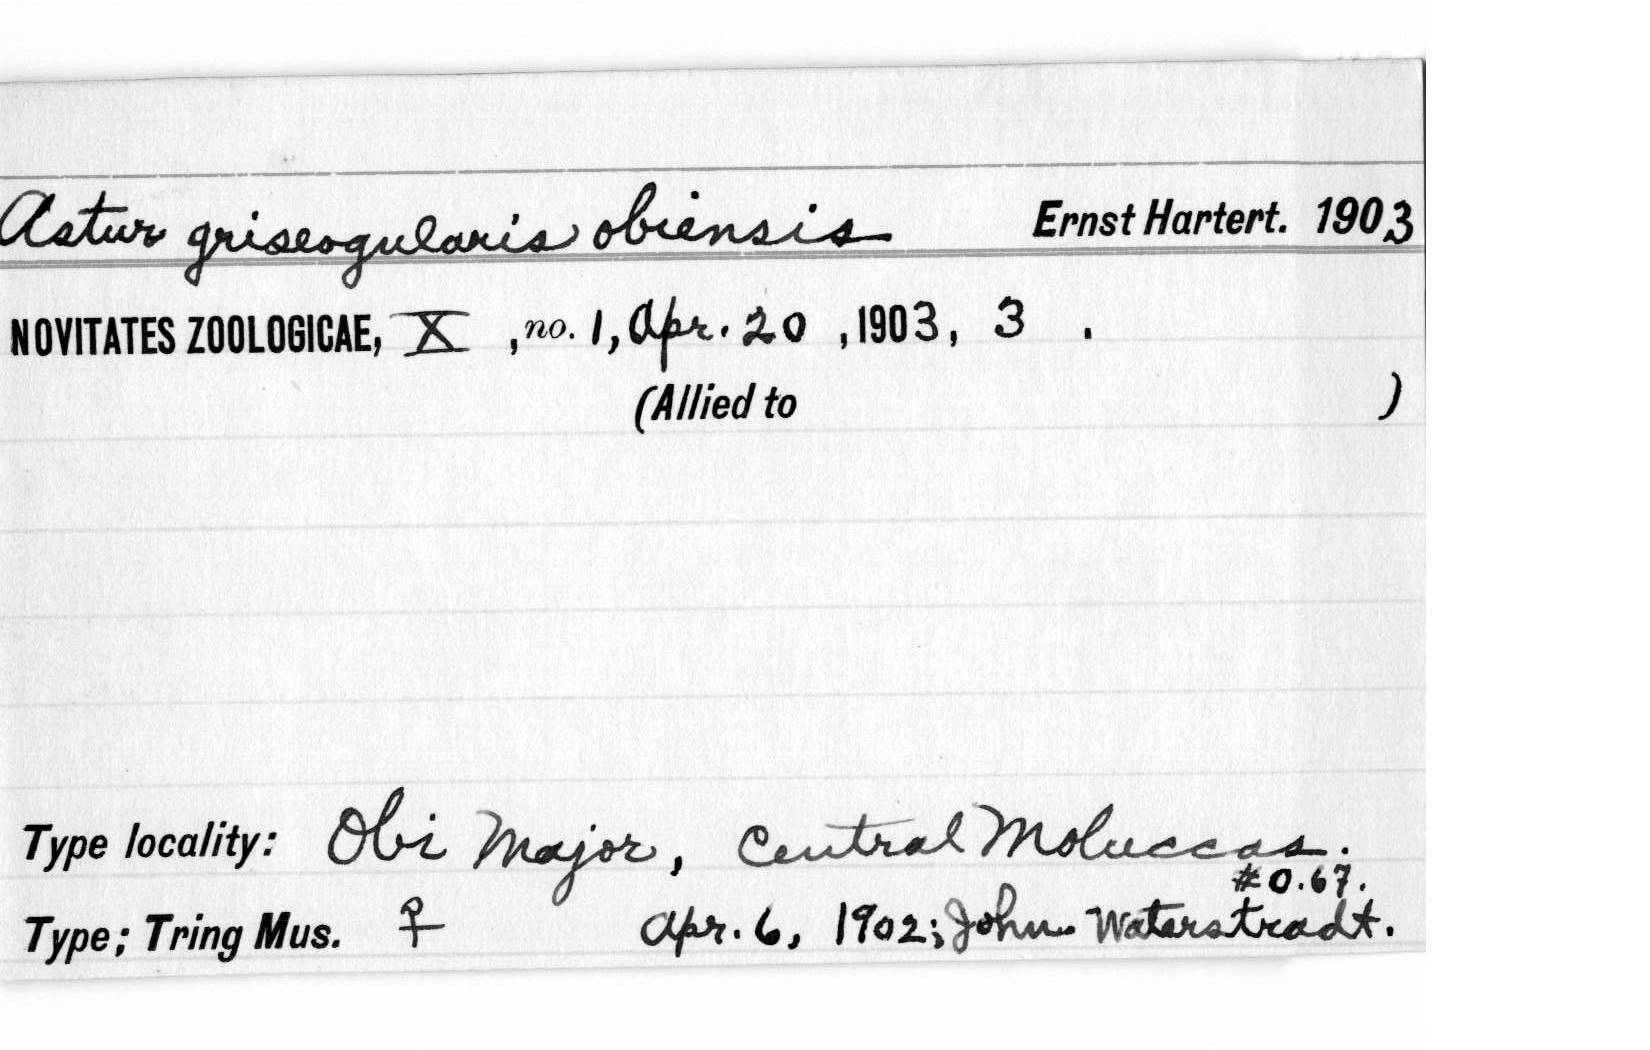 Astur griseogularis obiensis Ernst Hartert. 1903
NOVITATES ZOOLOGICAE, X , no. 1, Apr. 20 , 1903, 3 .
(Allied to )
Type locality: Obi Major, Central Moluccas.
#0.67.
Type; Tring Mus. ♀ Apr. 6, 1902; John Waterstradt.